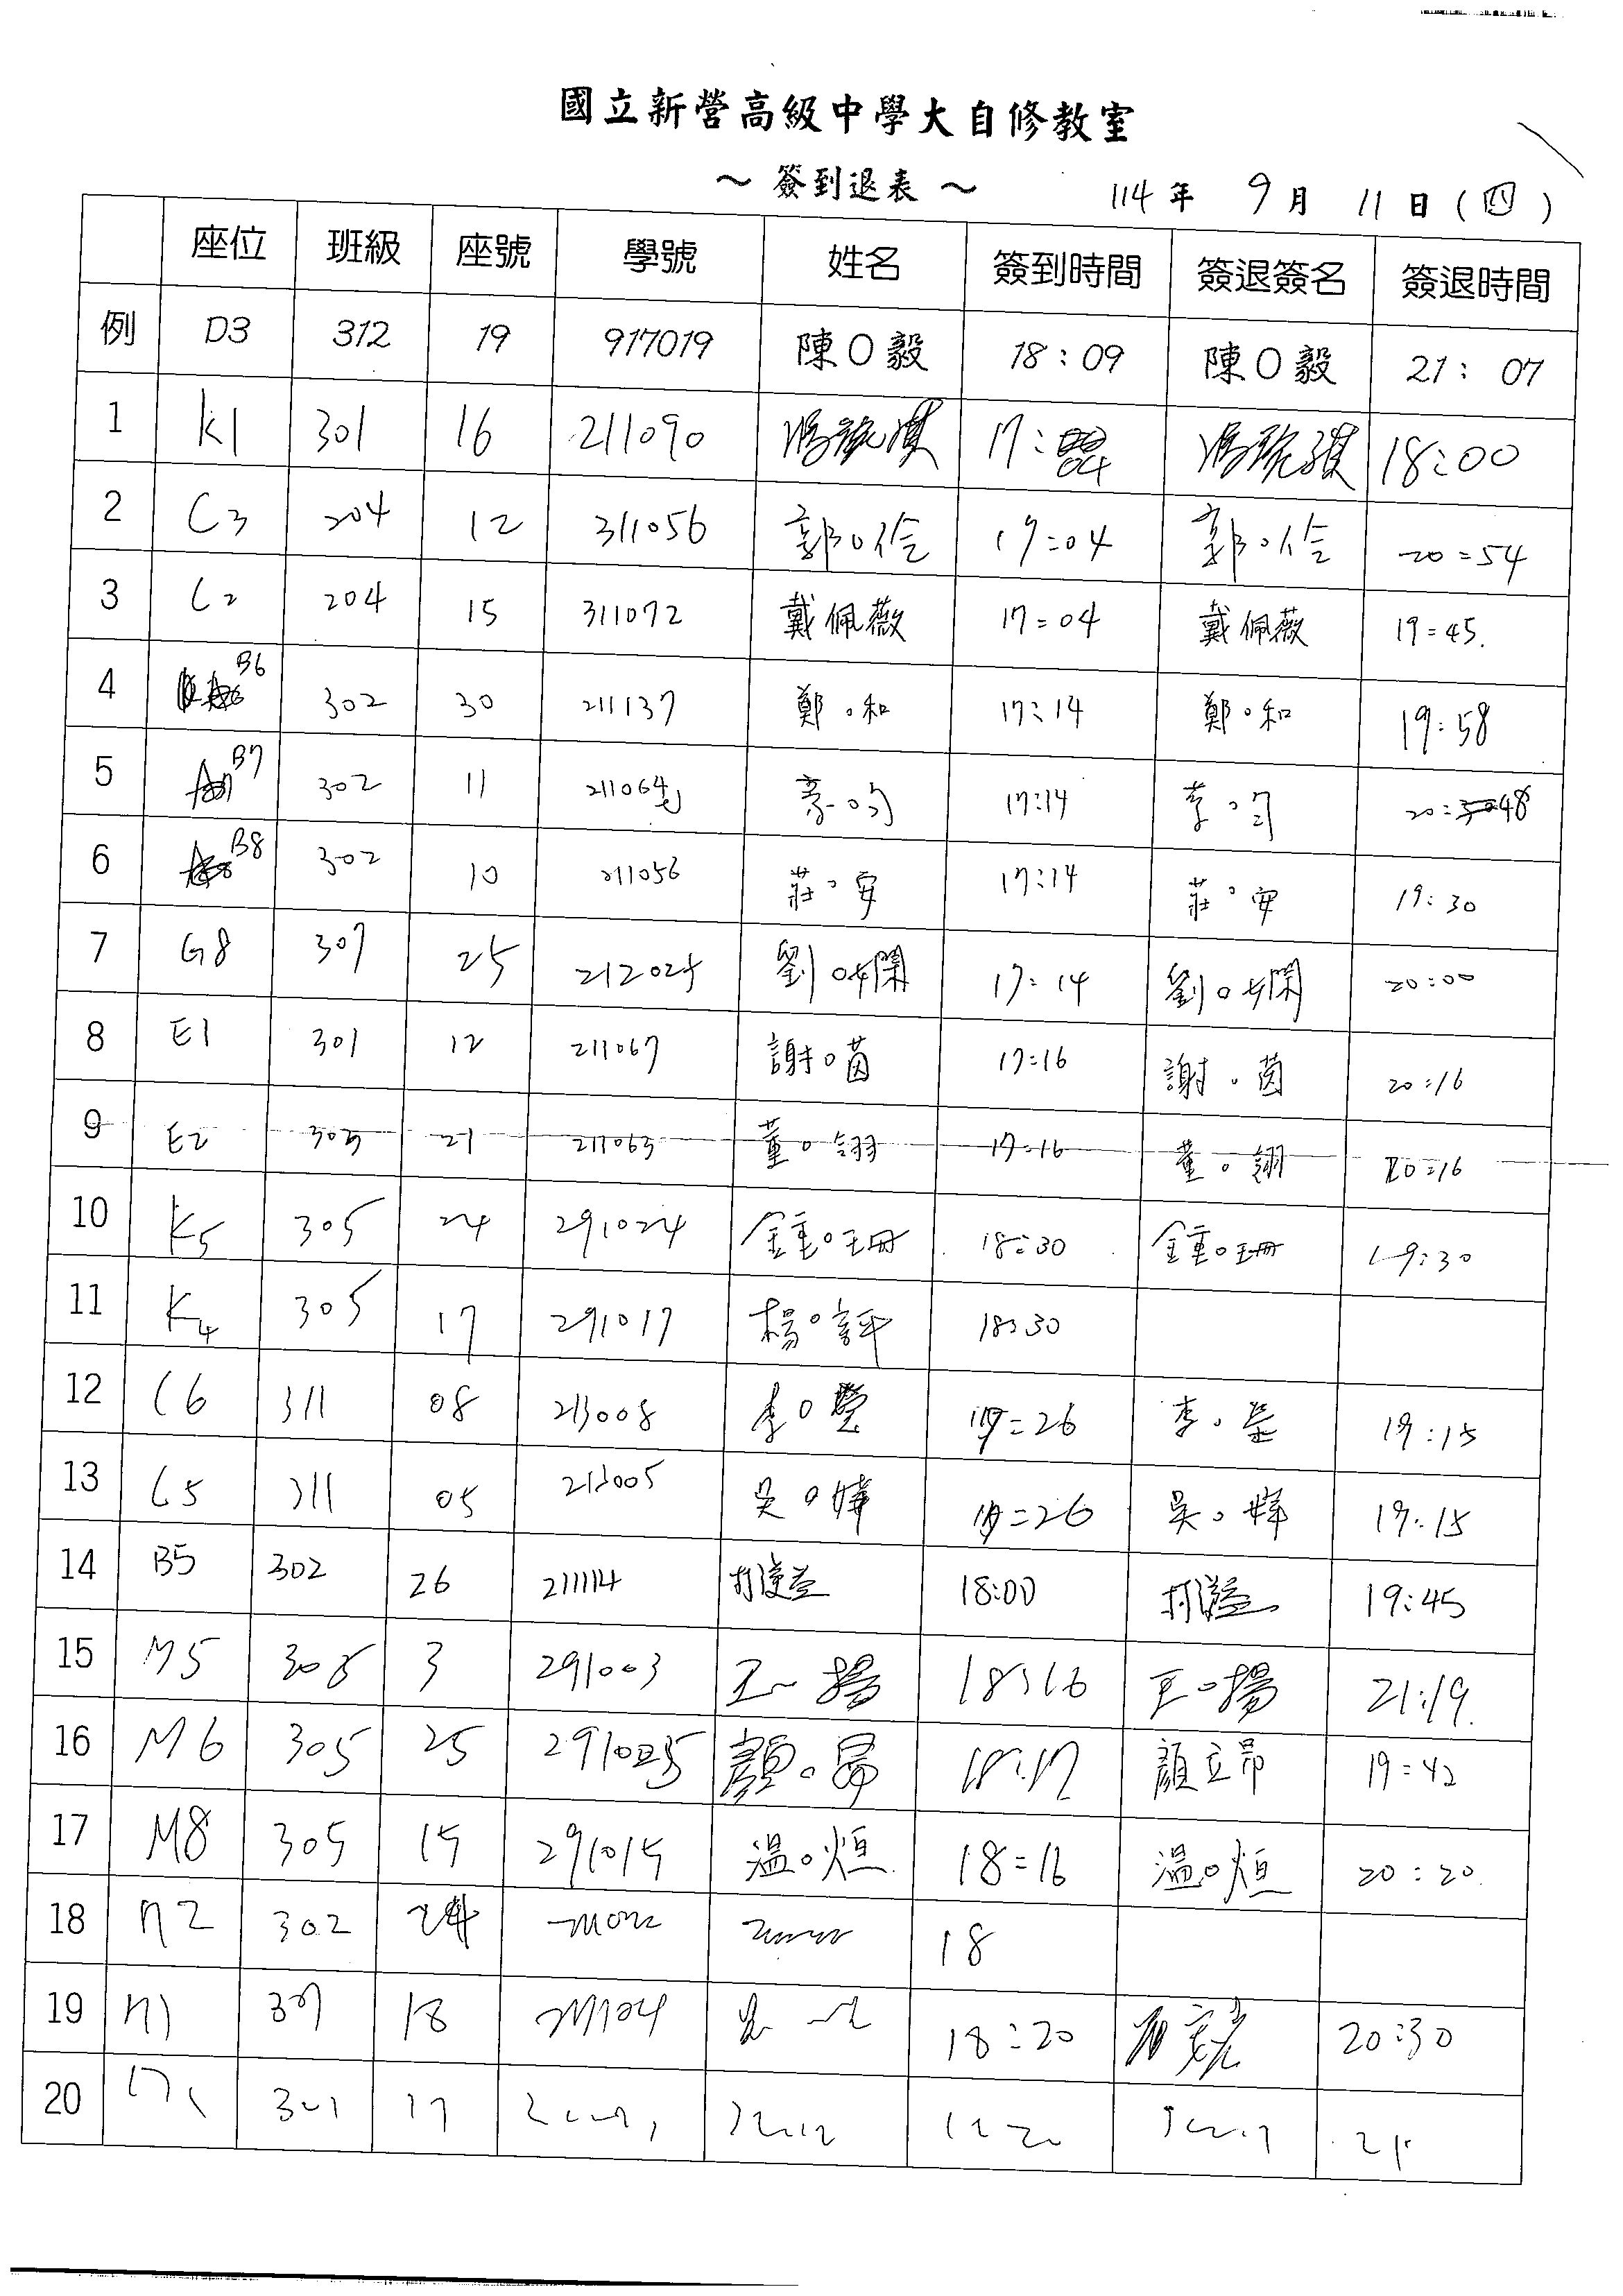 國立新營高級中學大自修教室
～ 簽到退表 ～ 114 年 9 月 11 日 (四)
座位 班級 座號 學號 姓名 簽到時間 簽退簽名 簽退時間
例 D3 312 19 917019 陳O毅 18:09 陳O毅 21:07
1 K1 301 16 211090 17:04 18:00
2 C3 204 12 311056 郭O佺 17:04 郭O佺 20:54
3 C2 204 15 311072 戴佩薇 17:04 戴佩薇 19:45
4 B6 302 30 211137 鄭O和 17:14 鄭O和 19:58
5 B7 302 11 17:14 李O 20:48
6 B8 302 10 211056 莊O安 17:14 莊O安 19:30
7 G8 307 25 212025 劉O嫻 17:14 劉O嫻 20:00
8 E1 301 12 211067 謝O茵 17:16 謝O茵 20:16
9 E2 303 21 211063 董O翎 17:16 董O翎 20:16
10 K5 305 24 291024 鍾O珊 18:30 鍾O珊 19:30
11 K4 305 17 291017 楊O評 18:30
12 C6 311 08 213008 李O 17:26 李O 19:15
13 C5 311 05 213005 吳O 17:26 吳O 19:15
14 B5 302 26 211114 18:00 19:45
15 M5 3 291003 王O揚 18:16 王O揚 21:19
16 M6 305 25 291025 顏O昂 18:17 顏立昂 19:42
17 M8 305 15 291015 溫O烜 18:16 溫O烜 20:20
18 302 18
19 18 18:20 20:30
20 301 17